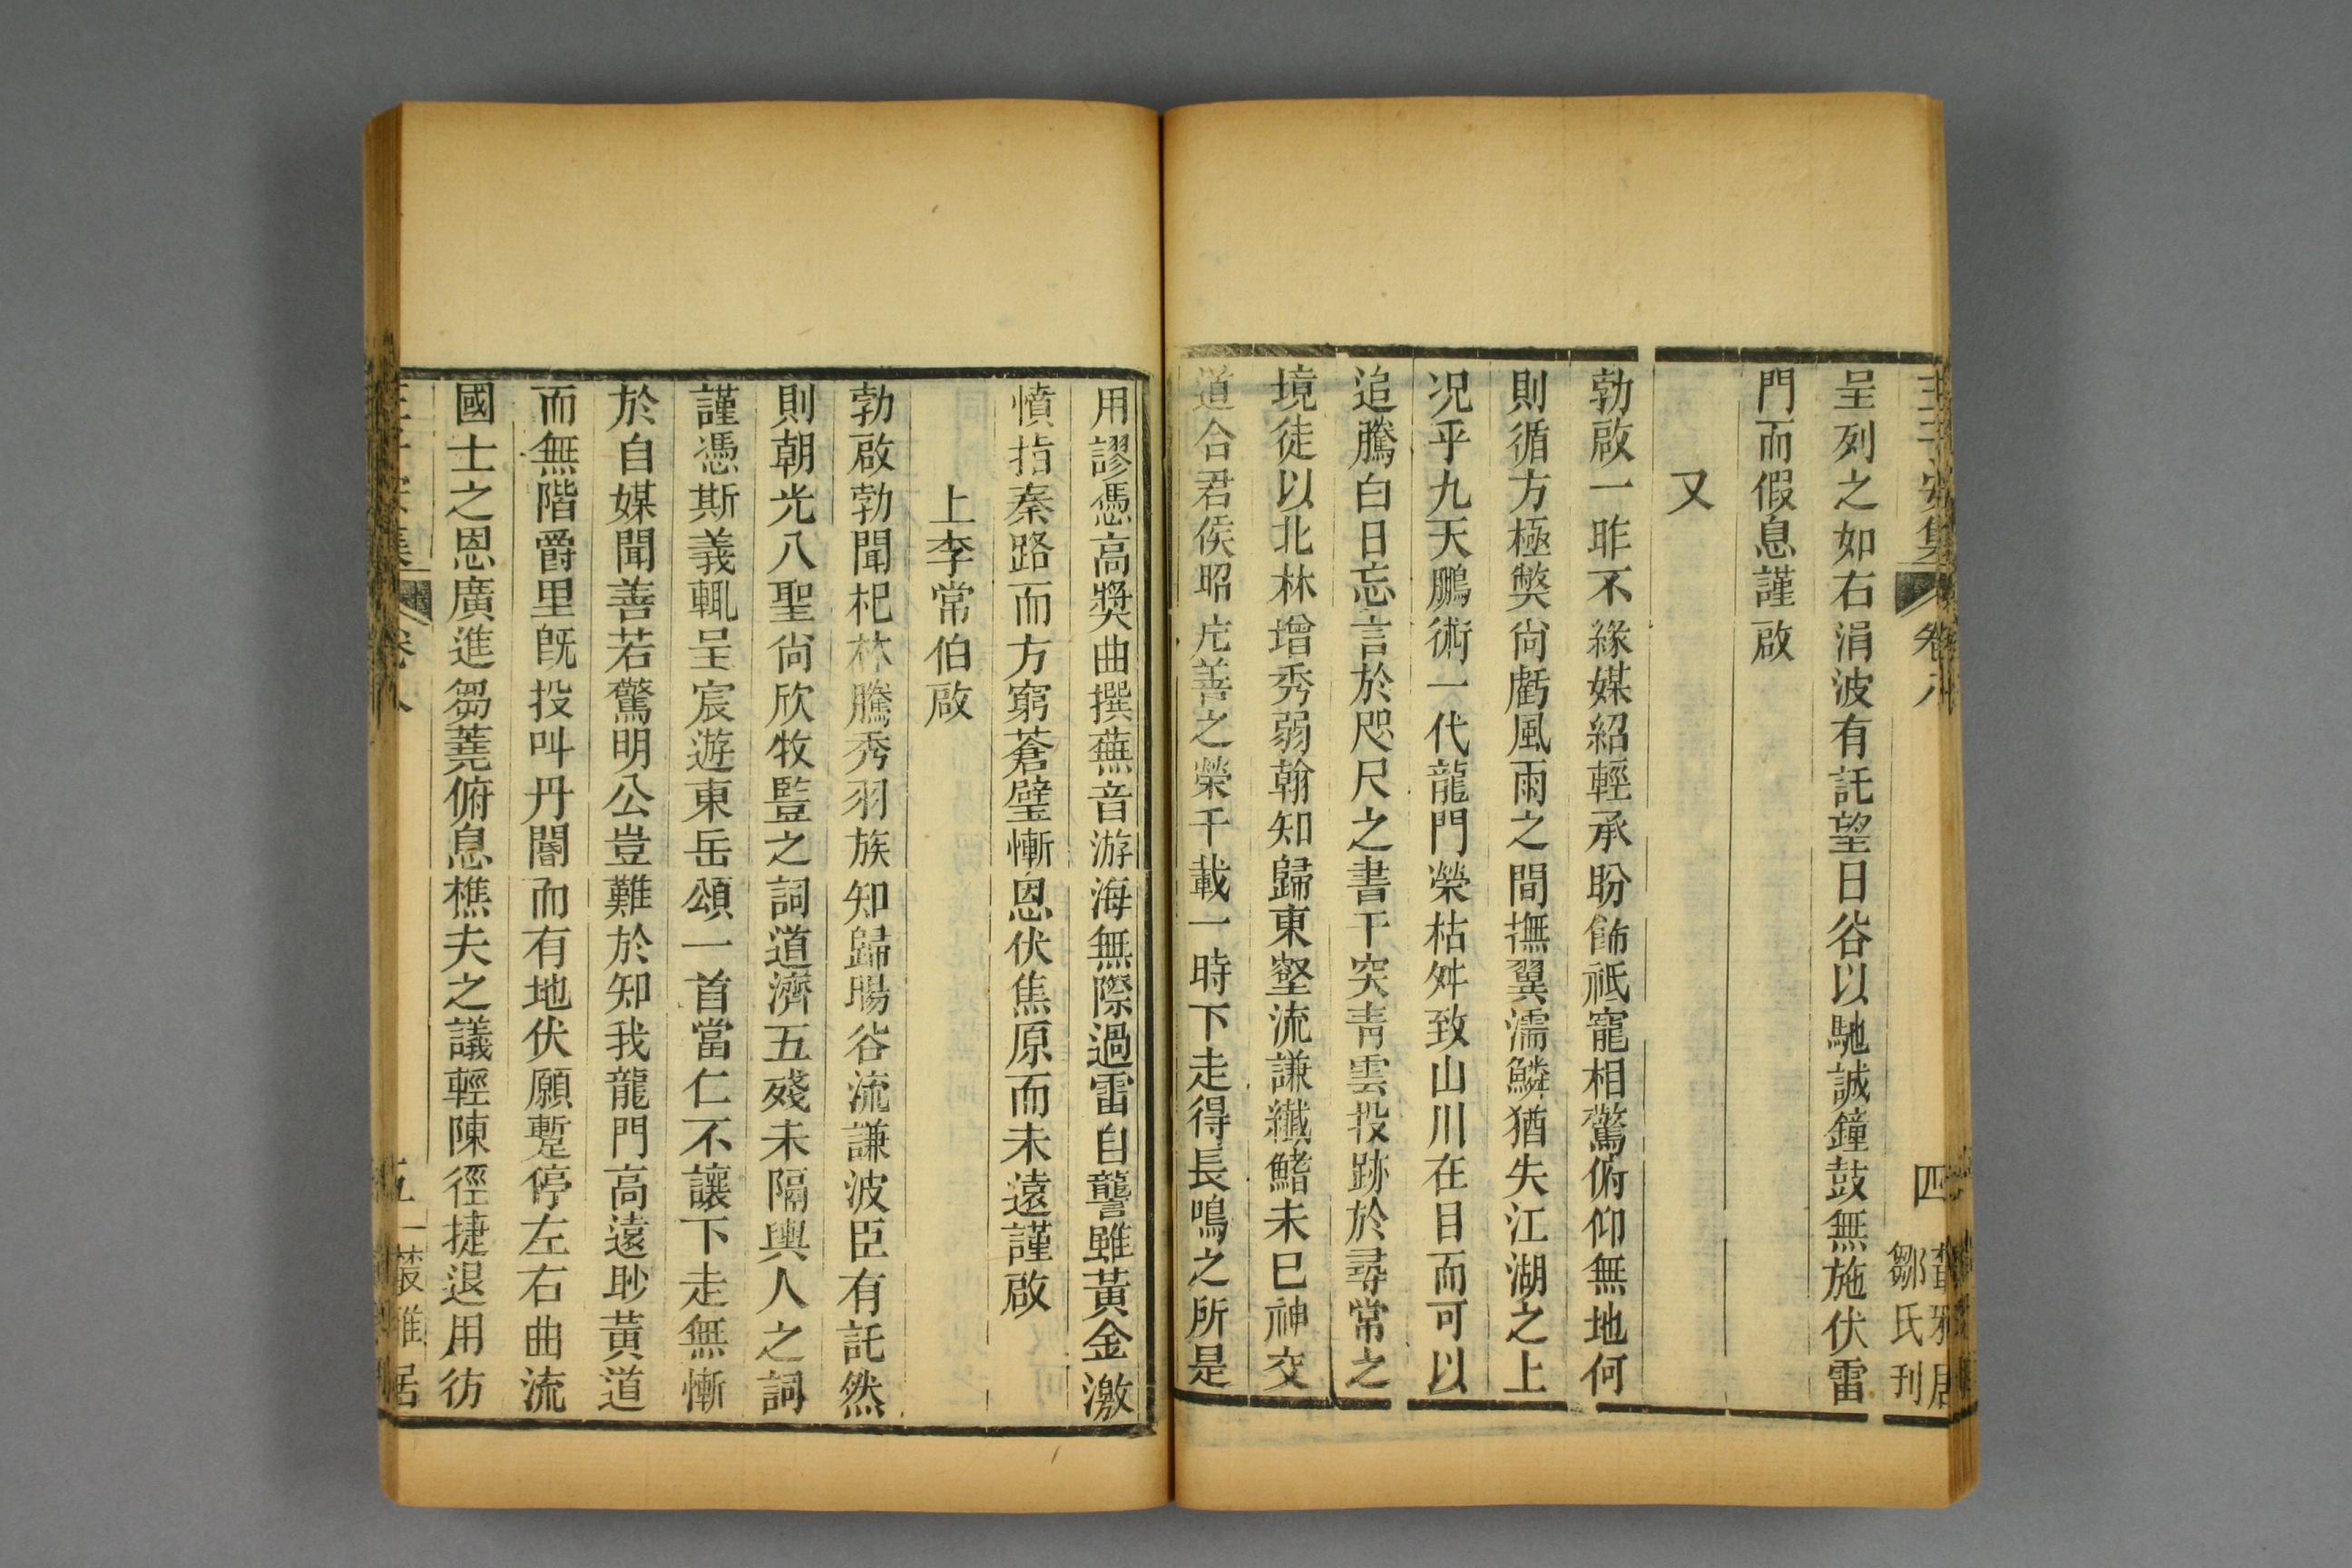 子安集 卷八 四
鄒氏刊
呈列之如右涓波有託望日谷以馳誠鐘鼓無施伏雷
門而假息謹啟
又
勃啟一昨不緣媒紹輕承盼飾祇寵相驚俯仰無地何
則循方極獘尚虧風雨之間撫翼濡鱗猶失江湖之上
况乎九天鵬術一代龍門榮枯舛致山川在目而可以
追騰白日忘言於咫尺之書干突青雲投跡於尋常之
境徒以北林增秀弱翰知歸東壑流謙纎鰭未巳神交
道合君侯昭庀善之榮千載一時下走得長鳴之所是
用謬憑高奬曲撰蕪音游海無際過雷自讋雖黃金激
憤指秦路而方窮蒼璧慚恩伏焦原而未遠謹啟
上李常伯啟
勃啟勃聞杞林騰秀羽族知歸暘谷流謙波臣有託然
則朝光八聖尚欣牧豎之詞道濟五殘未隔輿人之詞
謹憑斯義輒呈宸遊東岳頌一首當仁不讓下走無慚
於自媒聞善若驚明公豈難於知我龍門高遠眇黃道
而無階爵里旣投呌丹閽而有地伏願蹔停左右曲流
國士之恩廣進芻蕘俯息樵夫之議輕陳徑捷退用彷
卷八 五